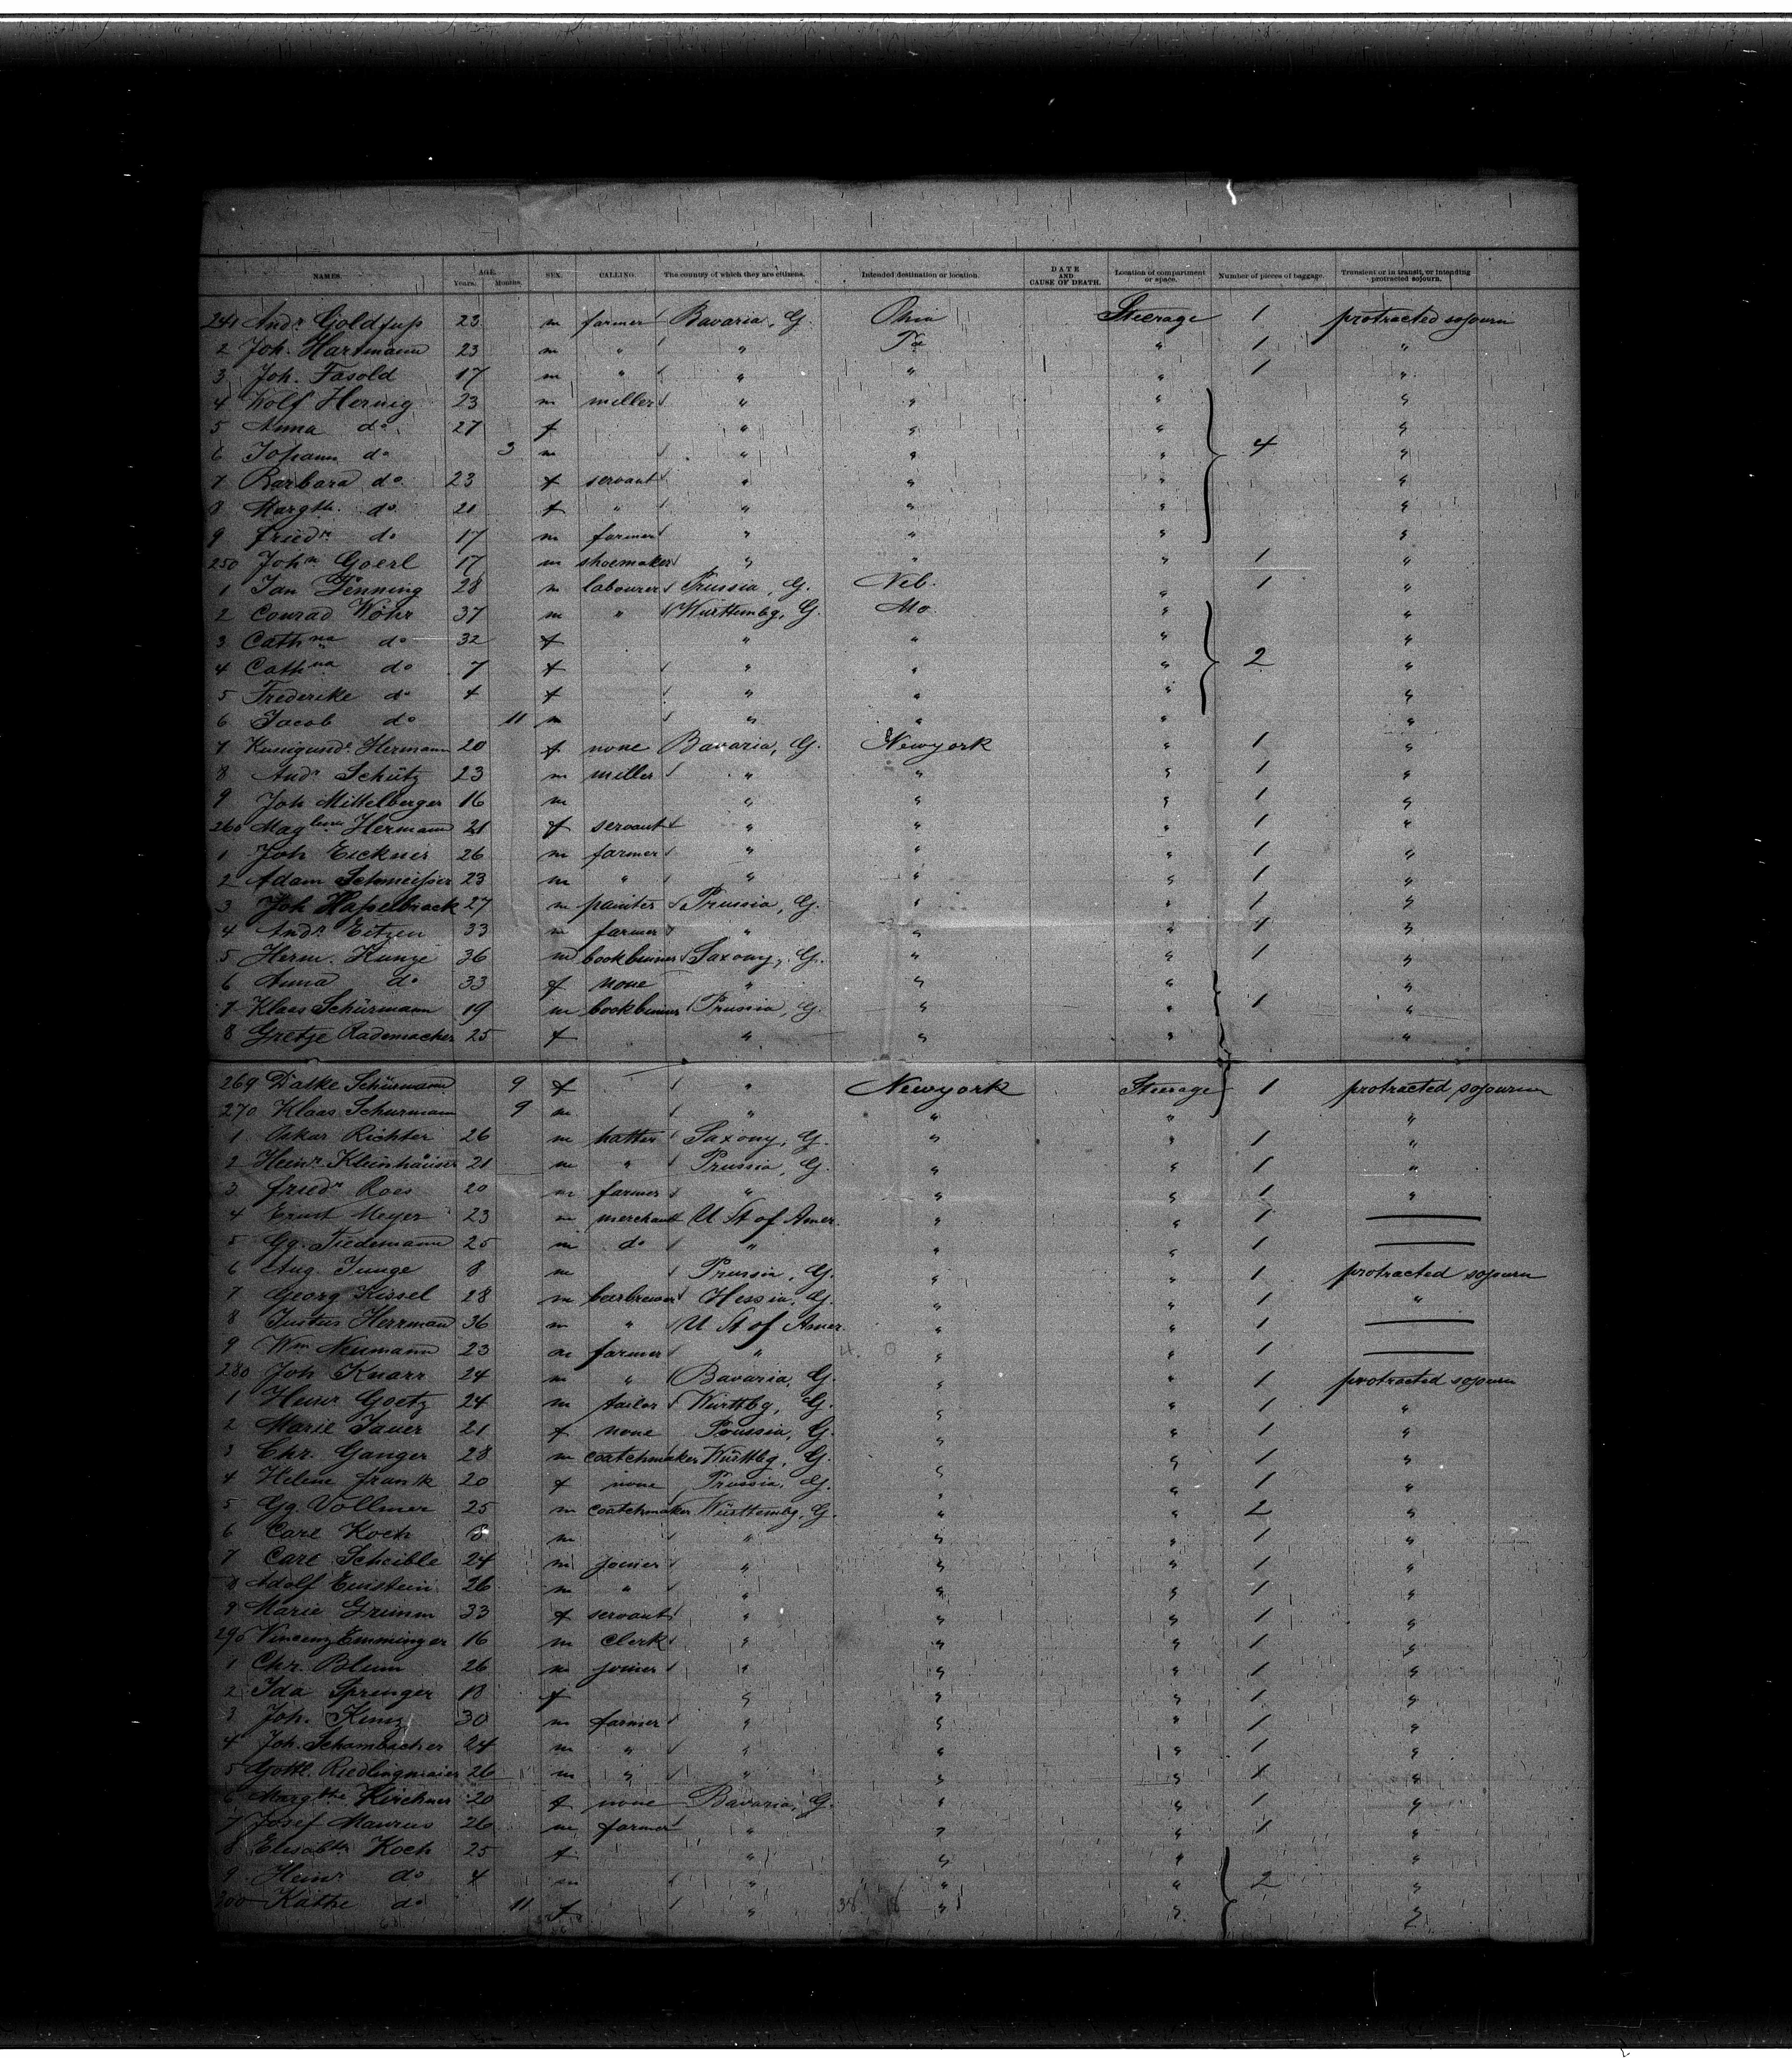 NAMES. AGE. Years. Months. SEX. CALLING. The country of which they are citizens. Intended destination or location. DATE AND CAUSE OF DEATH. Location of compartment or space. Number of pieces of baggage. Transient or in transit, or intending protracted sojourn.
241 Andr. Goldfuß 23 m farmer Bavaria, G. Ohio Steerage 1 protracted sojourn
2 Joh. Hartmann 23 m " " Pa " 1 "
3 Joh. Fasold 17 m " " " " 1 "
4 Wolf Hernig 23 m miller " " " "
5 Anna do 27 f " " " "
6 Johann do 3 m " " " 4 "
7 Barbara do 23 f servant " " " "
8 Margth. do 21 f " " " " "
9 Friedr. do 17 m farmer " " " "
250 John Goerl 17 m shoemaker " " " 1 "
1 Jan Fenning 28 m labourer Prussia, G. Neb. " 1 "
2 Conrad Wöhr 37 m " Württembg, G. Mo. " "
3 Cathna do 32 f " " " "
4 Cathna do 7 f " " " 2 "
5 Frederike do 4 f " " " "
6 Jacob do 11 m " " " "
7 Kunigunde Hermann 20 f none Bavaria, G. Newyork " 1 "
8 Andr. Schütz 23 m miller " " " 1 "
9 Joh Mittelberger 16 m " " " 1 "
260 Maglena Hermann 21 f servant " " " 1 "
1 Joh Eickner 26 m farmer " " " 1 "
2 Adam Schmeißer 23 m " " " " 1 "
3 Joh Haßelbrack 27 m painter Prussia, G. " " 1 "
4 Andr. Eitzen 33 m farmer " " " 1 "
5 Herm. Kunze 36 m bookbinner Saxony, G. " " 1 "
6 Anna do 33 f none " " " "
7 Klaas Schürmann 19 m bookbinner Prussia, G. " " 1 "
8 Gretje Rademacher 25 f " " " "
269 Schürmann 9 f " Newyork Steerage 1 protracted sojourn
270 Klaas Schurmann 9 m " " " "
1 Oskar Richter 26 m hatter Saxony, G. " " 1 "
2 Heinr. Kleinhäuser 21 m " Prussia, G. " " 1 "
3 Friedr Roes 20 m farmer " " " 1 "
4 Ernst Meyer 23 m merchant U St of Amer. " " 1
5 Gg. Tiedemann 25 m do " " " 1
6 Aug. Junge 8 m Prussia, G. " " 1 protracted sojourn
7 Georg Kissel 28 m beerbrewer Hessia, G. " " 1 "
8 Justus Herrman 36 m " U St of Amer. " " 1
9 Wm Neumann 23 m farmer " " " 1
280 Joh Knarr 24 m " Bavaria, G. " " 1 protracted sojourn
1 Heinr Goetz 24 m tailor Württbg, G. " " 1 "
2 Marie Jauer 21 f none Prussia, G. " " 1 "
3 Chr. Ganger 28 m coatchmaker Württbg, G. " " 1 "
4 Helene Frank 20 f none Prussia, G. " " 1 "
5 Gg. Vollmer 25 m coatchmaker Württembg, G. " " 2 "
6 Carl Koch m " " " 1 "
7 Carl Scheible 24 m joiner " " " 1 "
8 Adolf Einstein 26 m " " " " 1 "
9 Marie Grimm 33 f servant " " " 1 "
290 Vincenz Emminger 16 m clerk " " " 1 "
1 Chr. Blum 26 m joiner " " " 1 "
2 Ida Springer 18 f " " " 1 "
3 Joh. Kunz 30 m farmer " " " 1 "
4 Joh. Schambacher 24 m " " " " 1 "
5 Gottl. Riedlingmaier 26 m " " " " 1 "
6 Margthe Kirchner 20 f none Bavaria, G. " " 1 "
7 Josef Maurus 26 m farmer " " " 1 "
8 Elisabth Koch 25 f " " " "
9 Heinr. do 4 m " " " 2 "
300 Käthe do 11 f " " " "